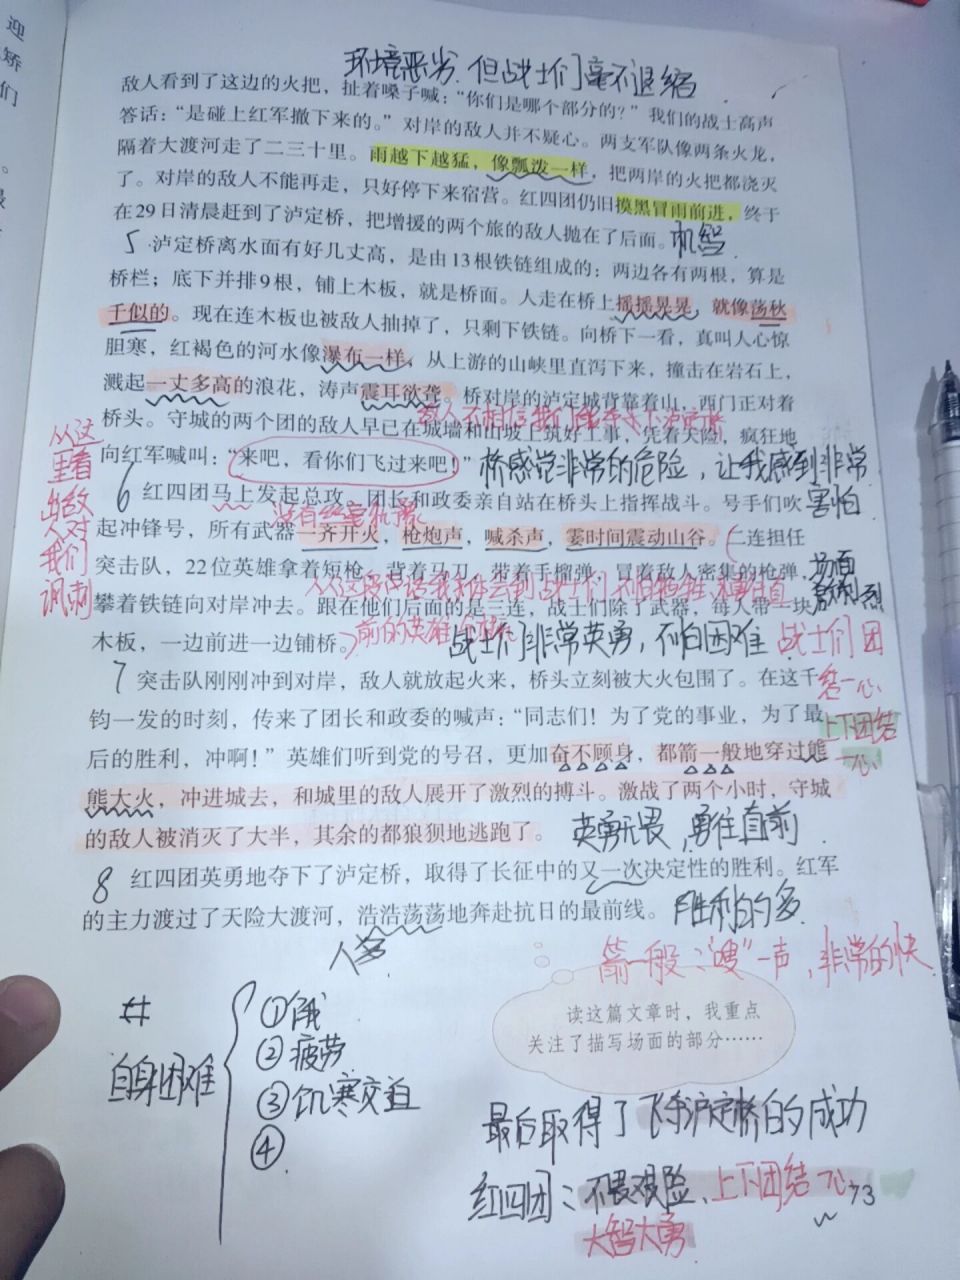 迎
矫
们
环境恶劣.但战士们毫不退缩
敌人看到了这边的火把，扯着嗓子喊：“你们是哪个部分的？”我们的战士高声
答话：“是碰上红军撤下来的。”对岸的敌人并不疑心。两支军队像两条火龙，
隔着大渡河走了二三十里。雨越下越猛，像瓢泼一样，把两岸的火把都浇灭
了。对岸的敌人不能再走，只好停下来宿营。红四团仍旧摸黑冒雨前进，终于
在29日清晨赶到了泸定桥，把增援的两个旅的敌人抛在了后面。机智
5 泸定桥离水面有好几丈高，是由13根铁链组成的：两边各有两根，算是
桥栏；底下并排9根，铺上木板，就是桥面。人走在桥上摇摇晃晃，就像荡秋
千似的。现在连木板也被敌人抽掉了，只剩下铁链。向桥下一看，真叫人心惊
胆寒，红褐色的河水像瀑布一样，从上游的山峡里直泻下来，撞击在岩石上，
溅起一丈多高的浪花，涛声震耳欲聋。桥对岸的泸定城背靠着山，西门正对着
桥头。守城的两个团的敌人早已在城墙和山坡上筑好工事，凭着天险，疯狂地
向红军喊叫：“来吧，看你们飞过来吧！”桥感觉非常的危险，让我感到非常
害怕
从这
里看
出敌
人对
我们
讽刺
6 红四团马上发起总攻。团长和政委亲自站在桥头上指挥战斗。号手们吹
起冲锋号，所有武器一齐开火，枪炮声，喊杀声，霎时间震动山谷。二连担任
突击队，22位英雄拿着短枪，背着马刀，带着手榴弹，冒着敌人密集的枪弹，
场面
激烈
攀着铁链向对岸冲去。跟在他们后面的是三连，战士们除了武器，每人带一块
木板，一边前进一边铺桥。
战士们非常英勇，不怕困难
战士们团
结一心
7 突击队刚刚冲到对岸，敌人就放起火来，桥头立刻被大火包围了。在这千
钧一发的时刻，传来了团长和政委的喊声：“同志们！为了党的事业，为了最
后的胜利，冲啊！”英雄们听到党的号召，更加奋不顾身，都箭一般地穿过熊
上下团结
一心
熊大火，冲进城去，和城里的敌人展开了激烈的搏斗。激战了两个小时，守城
的敌人被消灭了大半，其余的都狼狈地逃跑了。 英勇无畏，勇往直前
8 红四团英勇地夺下了泸定桥，取得了长征中的又一次决定性的胜利。红军
的主力渡过了天险大渡河，浩浩荡荡地奔赴抗日的最前线。胜利的多
人多
箭一般：“嗖”一声，非常的快
读这篇文章时，我重点
关注了描写场面的部分……
自身困难
①饿
②疲劳
③饥寒交迫
④
最后取得了飞夺泸定桥的成功
红四团：不畏艰险、上下团结一心
大智大勇
73